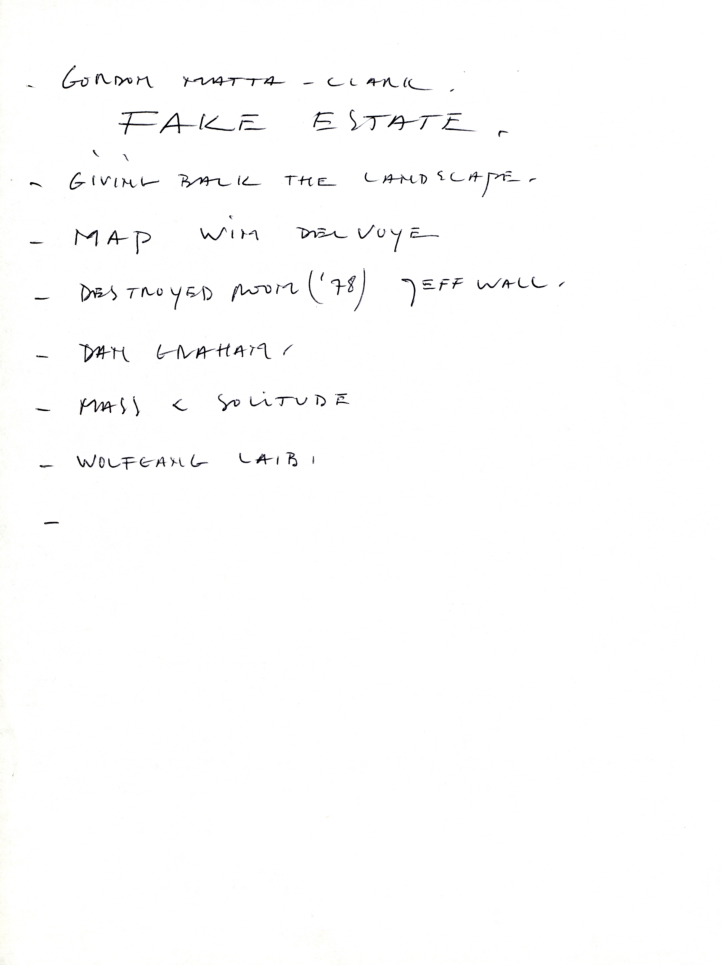 - GORDON MATTA - CLARK.
FAKE ESTATE.
- GIVING BACK THE LANDSCAPE.
- MAP WIM DELVOYE
- DESTROYED ROOM ('78) JEFF WALL.
- DAN GRAHAM.
- MASS < SOLITUDE
- WOLFGANG LAIB.
-